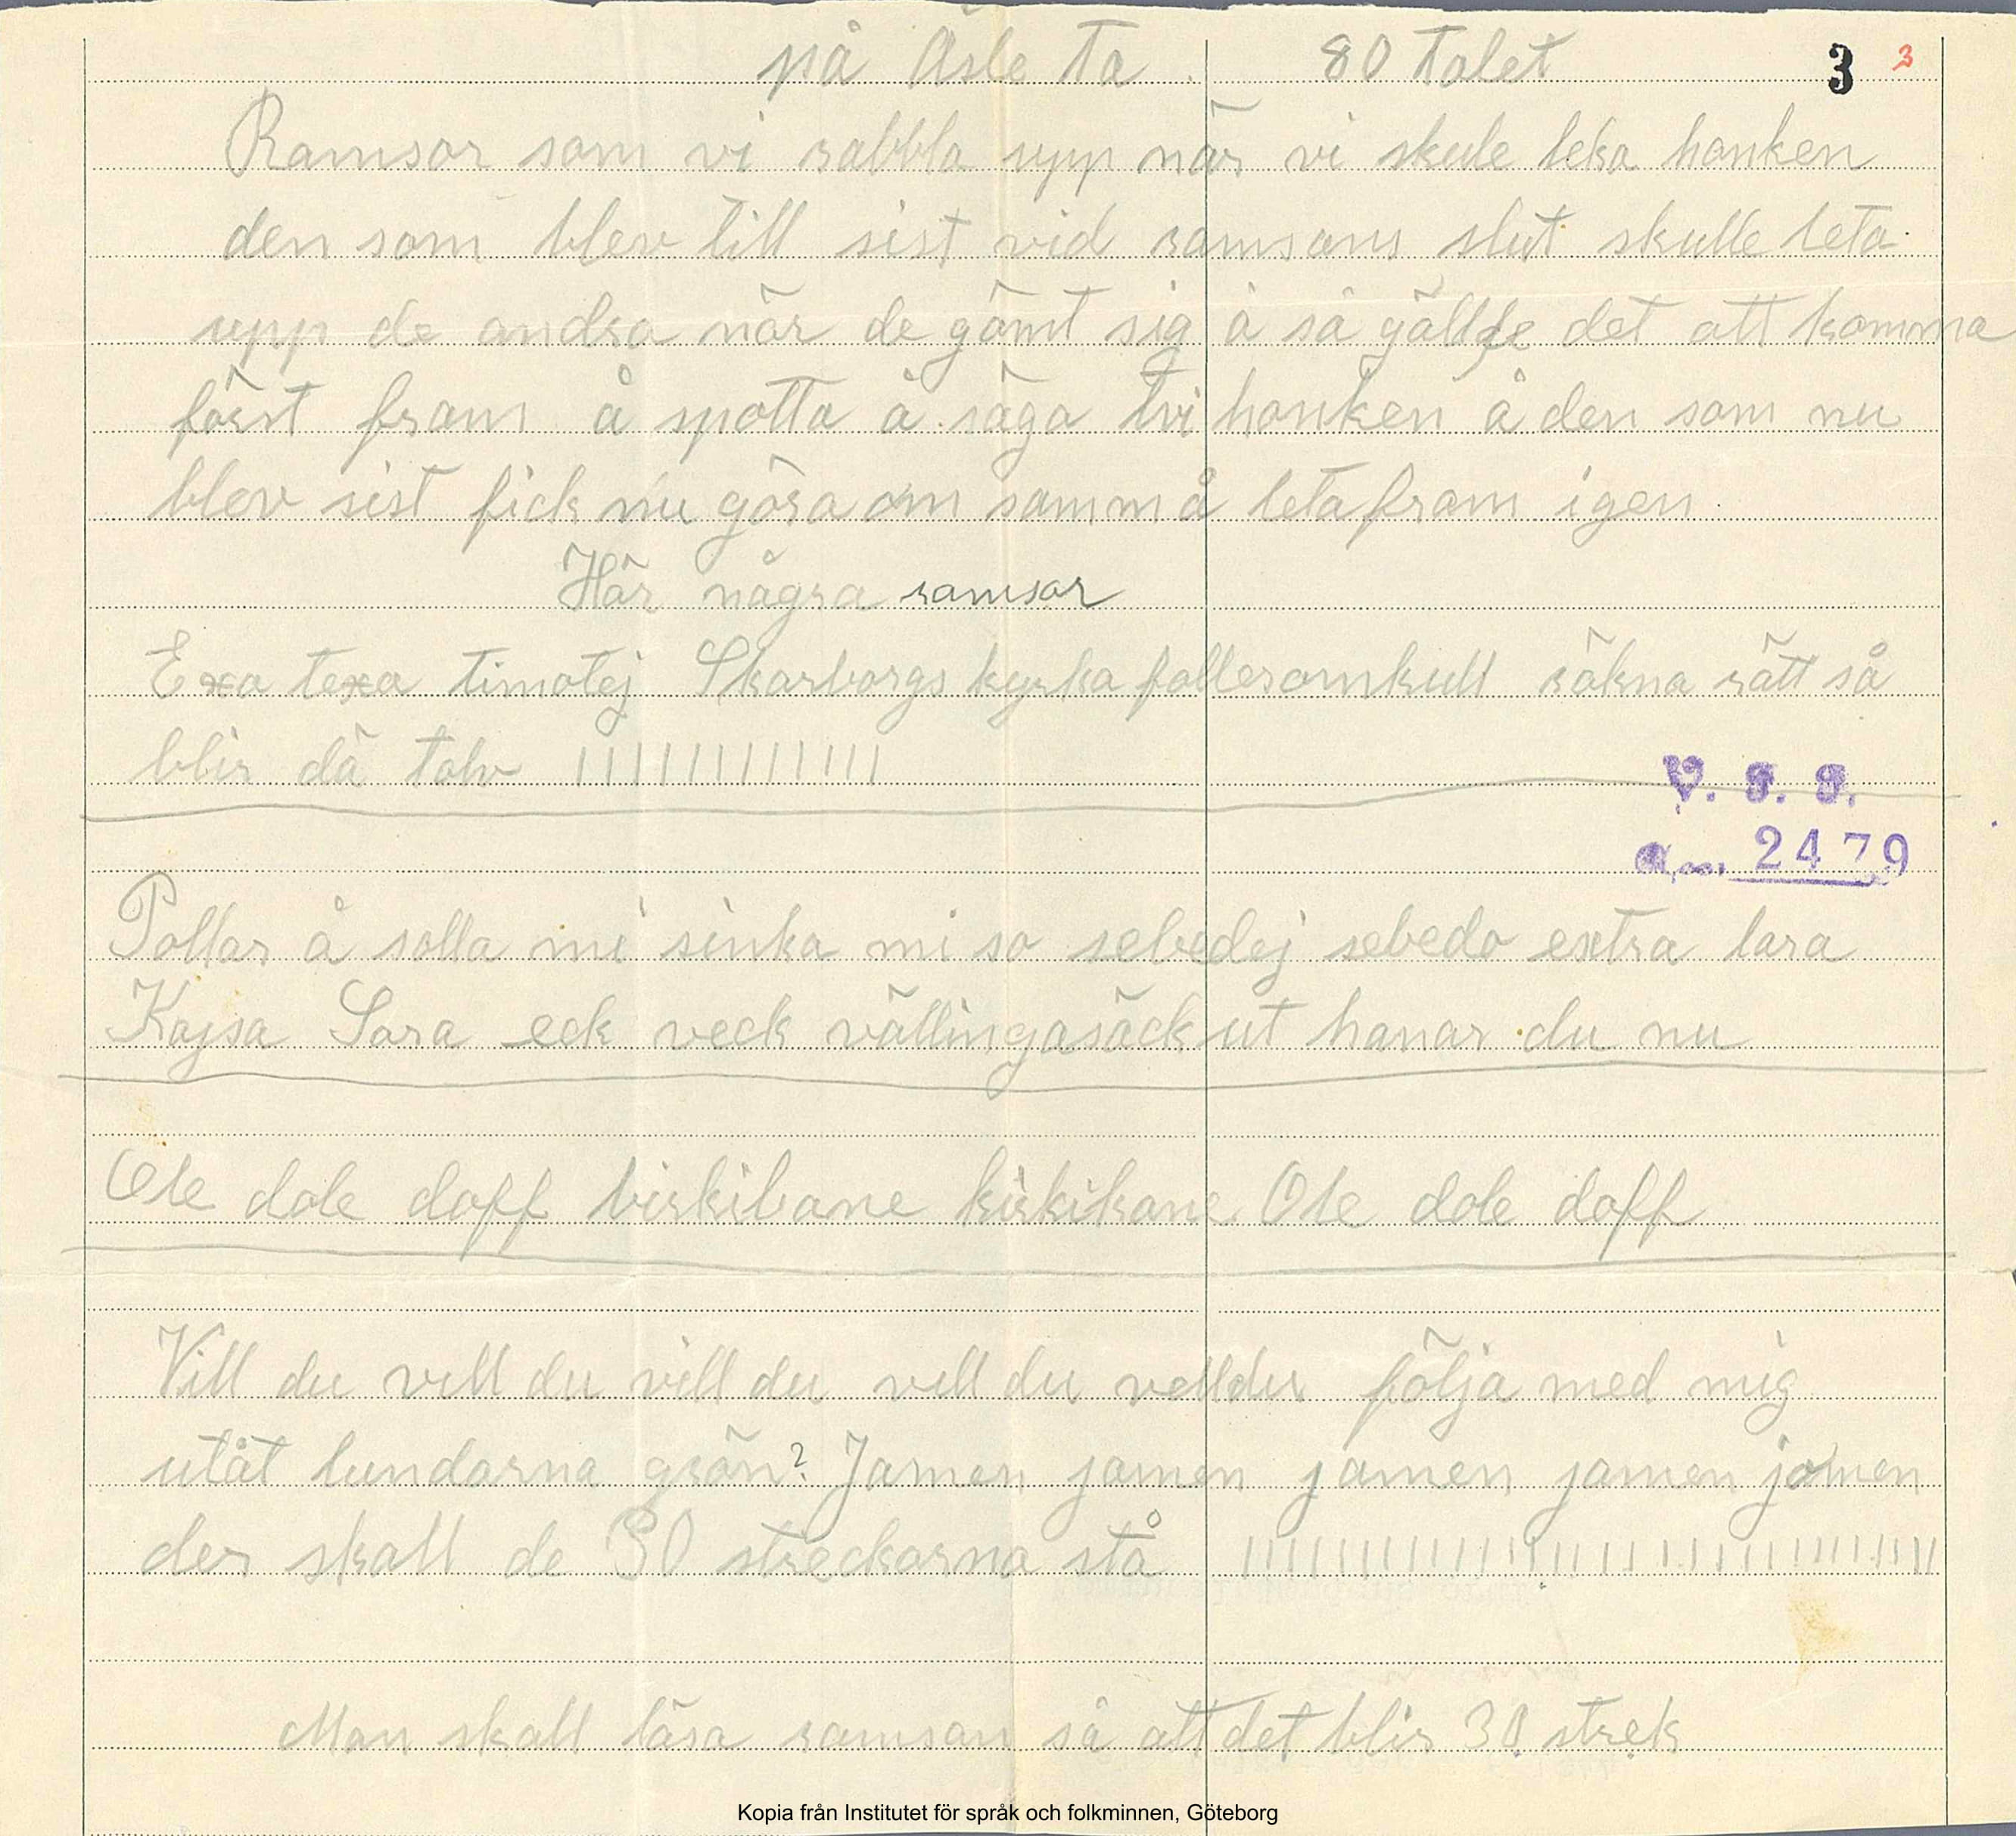 på Åsle Ta. 80 talet 3 3
Ramsor som vi rabbla upp när vi skule leka hanken
den som blev till sist vid ramsans slut skulle leta
upp de andra när de gömt sig å så gällde det att komma
först fram å spotta å säga tvi hanken å den som nu
blev sist fick nu göra om samm å leta fram igen.
Här några ramsor
Exa texa timotej Skarborgs kyrka falleromkull räkna rätt så
blir dä tolv ||||||||||||
V. F. F.
Acc. 2479
Pollar å solla mi sinka mi so sebedej sebedo extra lara
Kajsa Sara eck veck vällingasäck ut hanar du nu
Ole dole doff birkibane kirkikane Ole dole doff
Vill du vill du vill du vill du villdu följa med mig
utåt lundarna grön? Jamen jamen jamen jamen jamen
der skall de 30 streckarna stå ||||||||||||||||||||||||||||||
Man skall läsa ramsan så att det blir 30 strek
Kopia från Institutet för språk och folkminnen, Göteborg